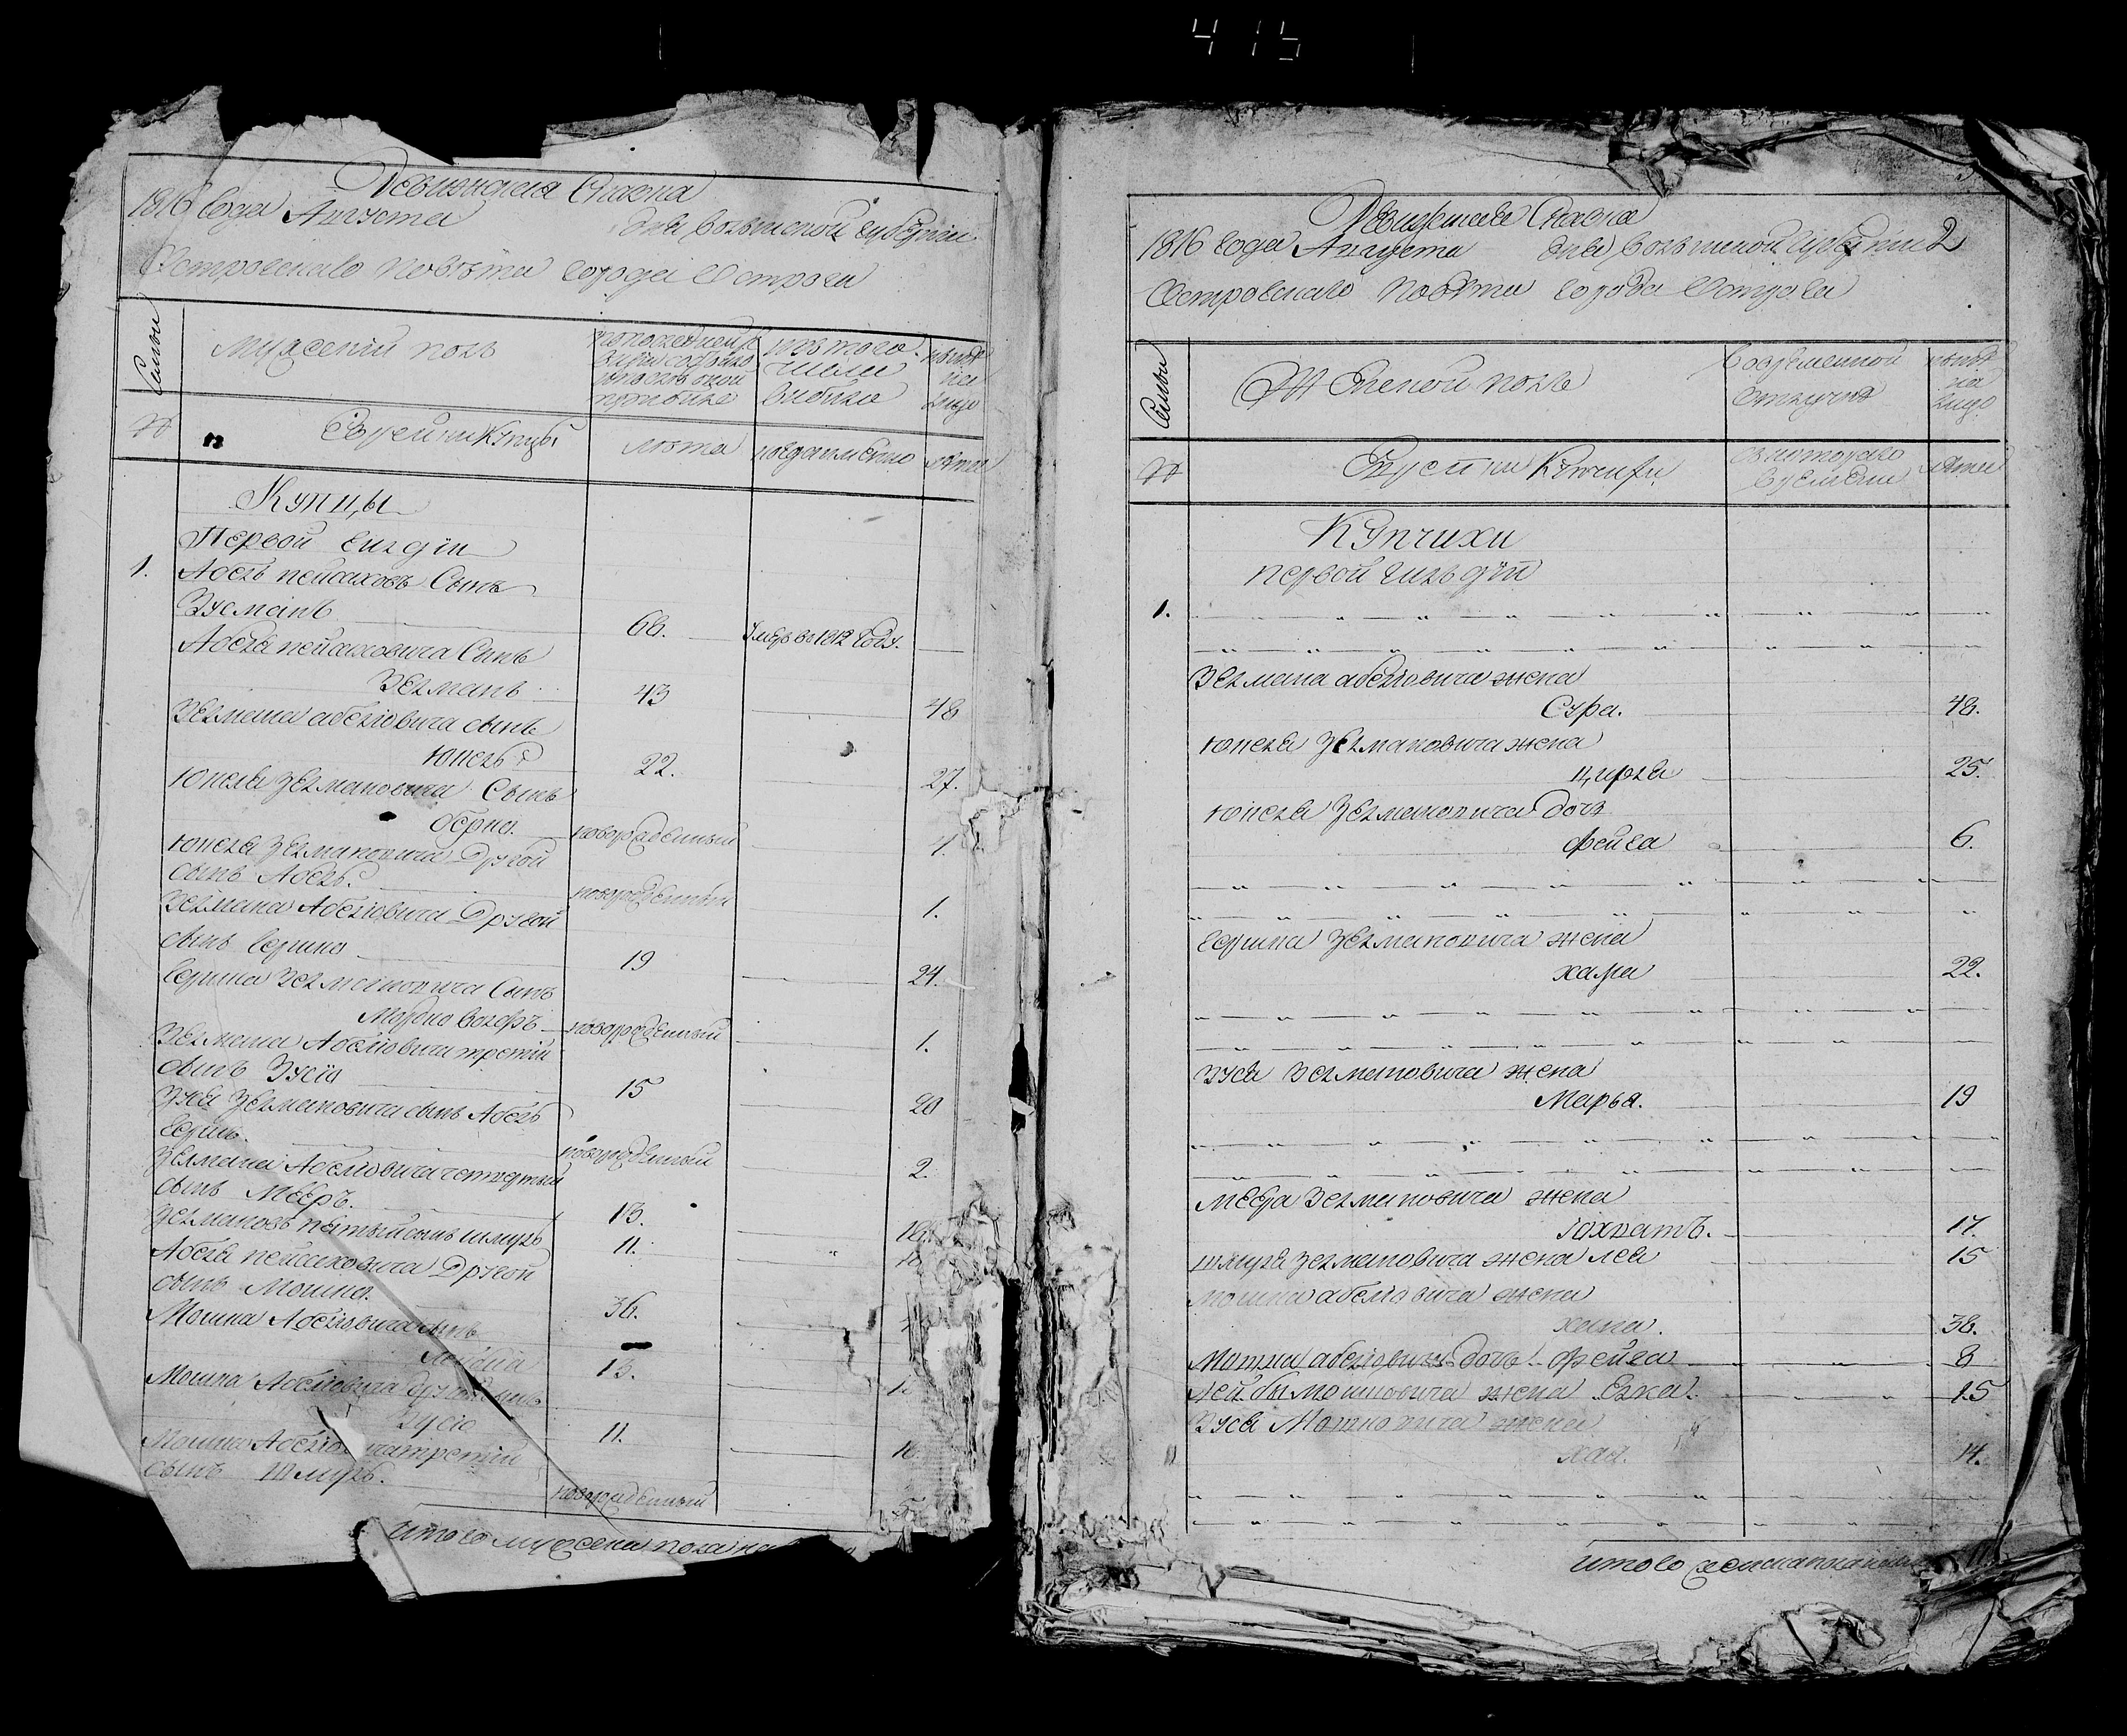 415
Ревизская Сказка
1816 года Августа дня Волынской губернии
Острогскаго повета города Острога
Семьи
Мужеский полъ
по последней ре
визии состояло
и после оной
прибыло
изъ того
числа
выбыло
ныне
на
лицо
№
Евреи и Купцы
лета
когда именно
лета
Купцы
Первой гилдiи
1. Абель пейсаховъ Сынъ
Зусманъ 66. Умеръ въ 1812 году.
Абеля пейсаховича Сынъ
Зелманъ 43 48
Зелмана абелiовича сынъ
юпель 22. 27.
юпеля Зелмановича Сынъ
берко. новорожденный 4.
юпеля Зелмановича Другой
сынъ Абель. новорожденный 1.
Зелмана Абелiовича Другой
сынъ Гершко 19 24.
Гершка Зелмановича Сынъ
Мордко новорожденный 1.
Зелмана Абелiовича третiй
сынъ Зусiа 15 20
Зуся Зелмановича сынъ Абель
Гершъ. новорожденный 2.
Зелмана Абелiовича четвертый
сынъ Мееръ. 13. 18.
Зелмановъ пятый сынъ шмуль 11.
Абеля пейсаховича Другой
сынъ Мошко. 36.
Мошка Абелiовича сынъ
Лейбиа 13.
Мошка Абелiовича другой сынъ
Зусiа 11. 16.
Мошка Абелiовича третiй
сынъ Шмуль. новорожденный 5.
Итого мужеска пола на
Ревизская Сказка
1816 года Августа дня Волынской Губернiи 2
Острогскаго повета города Острога
Семьи
Женской полъ
Во временной
отлучке
ныне
на
лицо
№
Евреи и Купчихи
съ котораго
времени
лета
Купчихи
первой гильдiи
1.
Зелмана абелiовича жена
Сура. 48.
юпеля Зелмановича жена
цирля 25.
юпеля Зелмановича дочь
фейга 6.
Гершка Зелмановича жена
хава 22.
Зуся Зелмановича жена
Марья. 19
Меера Зелмановича жена
17.
шмуля Зелмановича жена леа 15
мошка абелiовича жена
хана. 36.
Мошка абелiовича дочь фейга 8
Лейбы мошковича жена Елка. 15
Зуся Мошковича жена
хая. 14.
Итого женска пола